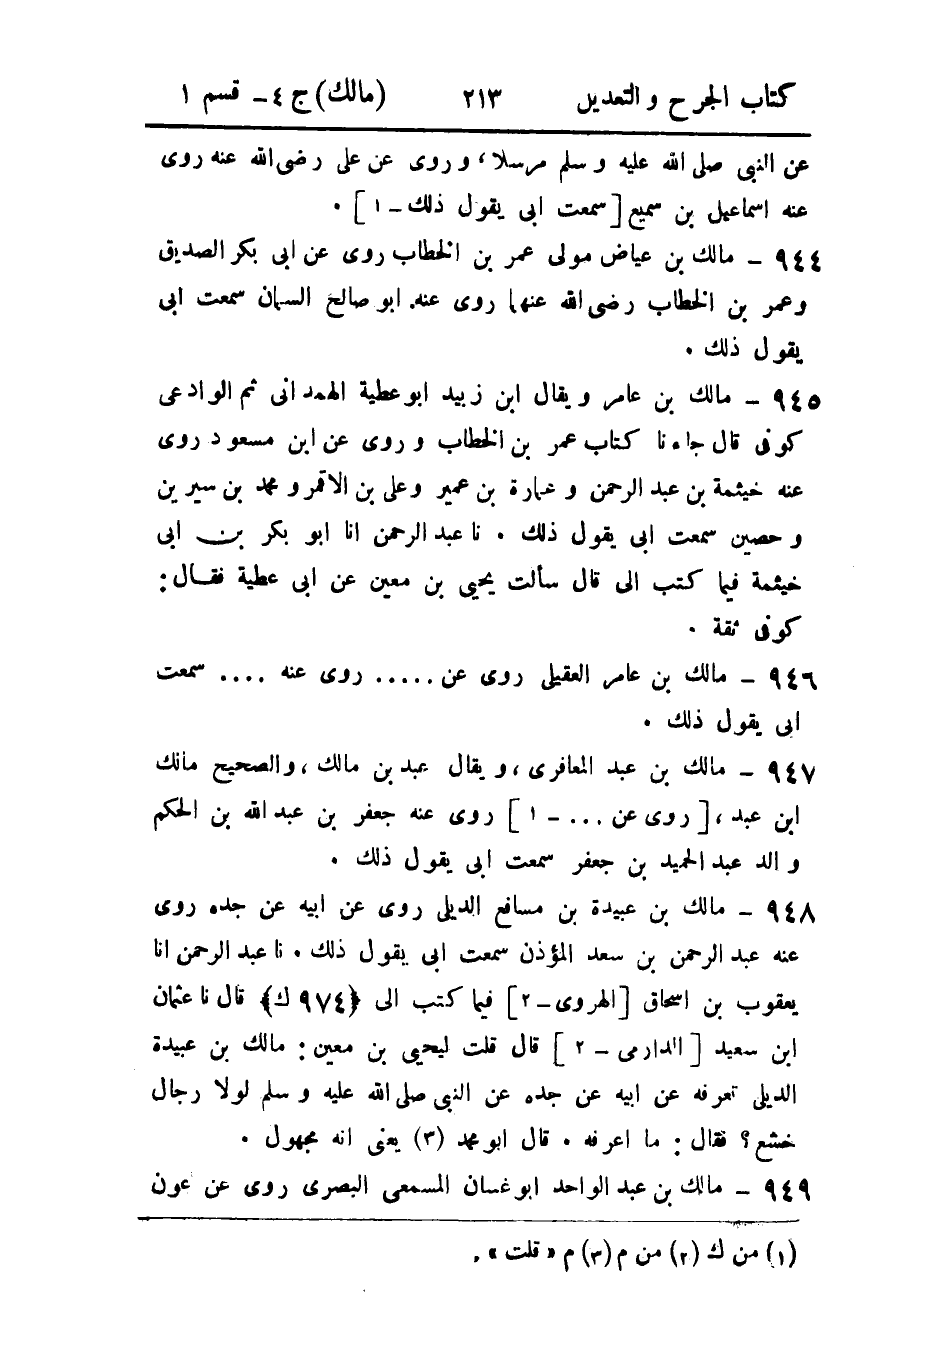 كتاب الجرح والتعديل ٢١٣ (مالك) ج ٤ - قسم ١
عن النبى صلى الله عليه وسلم مرسلا، وروى عن على رضى الله عنه روى
عنه اسماعيل بن سميع [سمعت ابى يقول ذلك - ١] .
٩٤٤ - مالك بن عياض مولى عمر بن الخطاب روى عن ابى بكر الصديق
وعمر بن الخطاب رضى الله عنهما روى عنه. ابو صالح السمان سمعت ابى
يقول ذلك .
٩٤٥ - مالك بن عامر ويقال ابن زبيد ابو عطية الهمدانى ثم الوادعى
كوفى قال جاءنا كتاب عمر بن الخطاب وروى عن ابن مسعود روى
عنه خيثمة بن عبد الرحمن وعمارة بن عمير وعلى بن الاقمر ومحمد بن سيرين
وحصين سمعت ابى يقول ذلك . نا عبد الرحمن انا ابو بكر بن ابى
خيثمة فيما كتب الى قال سألت يحيى بن معين عن ابى عطية فقال :
كوفى ثقة .
٩٤٦ - مالك بن عامر العقيلى روى عن ..... روى عنه .... سمعت
ابى يقول ذلك .
٩٤٧ - مالك بن عبد المعافرى ، ويقال عبد بن مالك ، والصحيح مالك
ابن عبد ، [روى عن ... - ١] روى عنه جعفر بن عبد الله بن الحكم
والد عبد الحميد بن جعفر سمعت ابى يقول ذلك .
٩٤٨ - مالك بن عبيدة بن مسافع الديلى روى عن ابيه عن جده روى
عنه عبد الرحمن بن سعد المؤذن سمعت ابى يقول ذلك . نا عبد الرحمن انا
يعقوب بن اسحاق [الهروى - ٢] فيما كتب الى ﴿٩٧٤ ك﴾ قال نا عثمان
ابن سعيد [الدارمى - ٢] قال قلت ليحيى بن معين : مالك بن عبيدة
الديلى تعرفه عن ابيه عن جده عن النبى صلى الله عليه وسلم لولا رجال
خشع؟ فقال : ما اعرفه . قال ابو محمد (٣) يعنى انه مجهول .
٩٤٩ - مالك بن عبد الواحد ابو غسان المسمعى البصرى روى عن عون
(١) من ك (٢) من م (٣) م « قلت » .